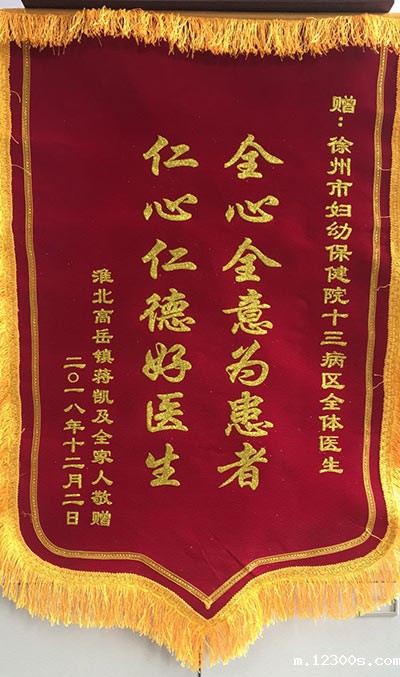 赠：徐州市妇幼保健院十三病区全体医生
全心全意为患者
仁心仁德好医生
淮北高岳镇蒋凯及全家人敬赠
二〇一八年十二月二日
m.12300s.com